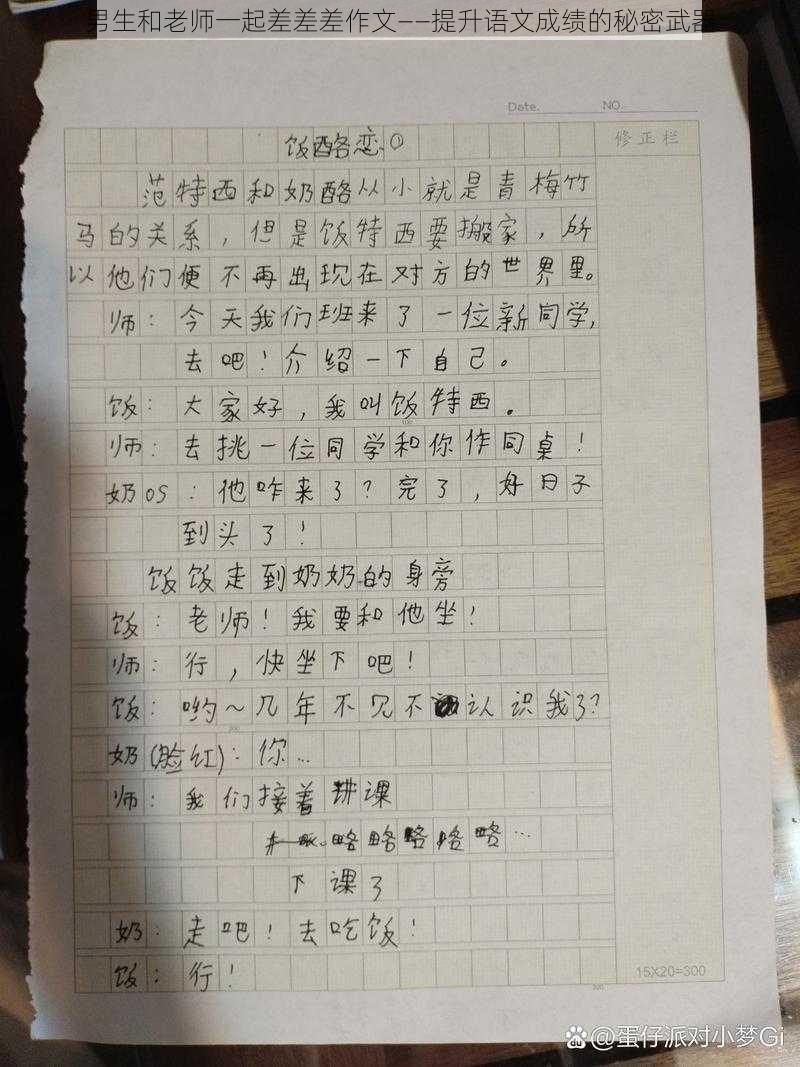 男生和老师一起差差差作文——提升语文成绩的秘密武器
Date. NO.
修正栏
饭酪恋①
范特西和奶酪从小就是青梅竹
马的关系，但是饭特西要搬家，所
以他们便不再出现在对方的世界里。
师：今天我们班来了一位新同学，
去吧！介绍一下自己。
饭：大家好，我叫饭特西。
100
师：去挑一位同学和你作同桌！
奶OS：他咋来了？完了，好日子
到头了！
饭饭走到奶奶的身旁
饭：老师！我要和他坐！
师：行，快坐下吧！
饭：哟~几年不见不认识我了？
200
奶(脸红)：你…
师：我们接着讲课
略略略略略…
下课了
奶：走吧！去吃饭！
饭：行！
300
15X20=300
@蛋仔派对小梦Gi